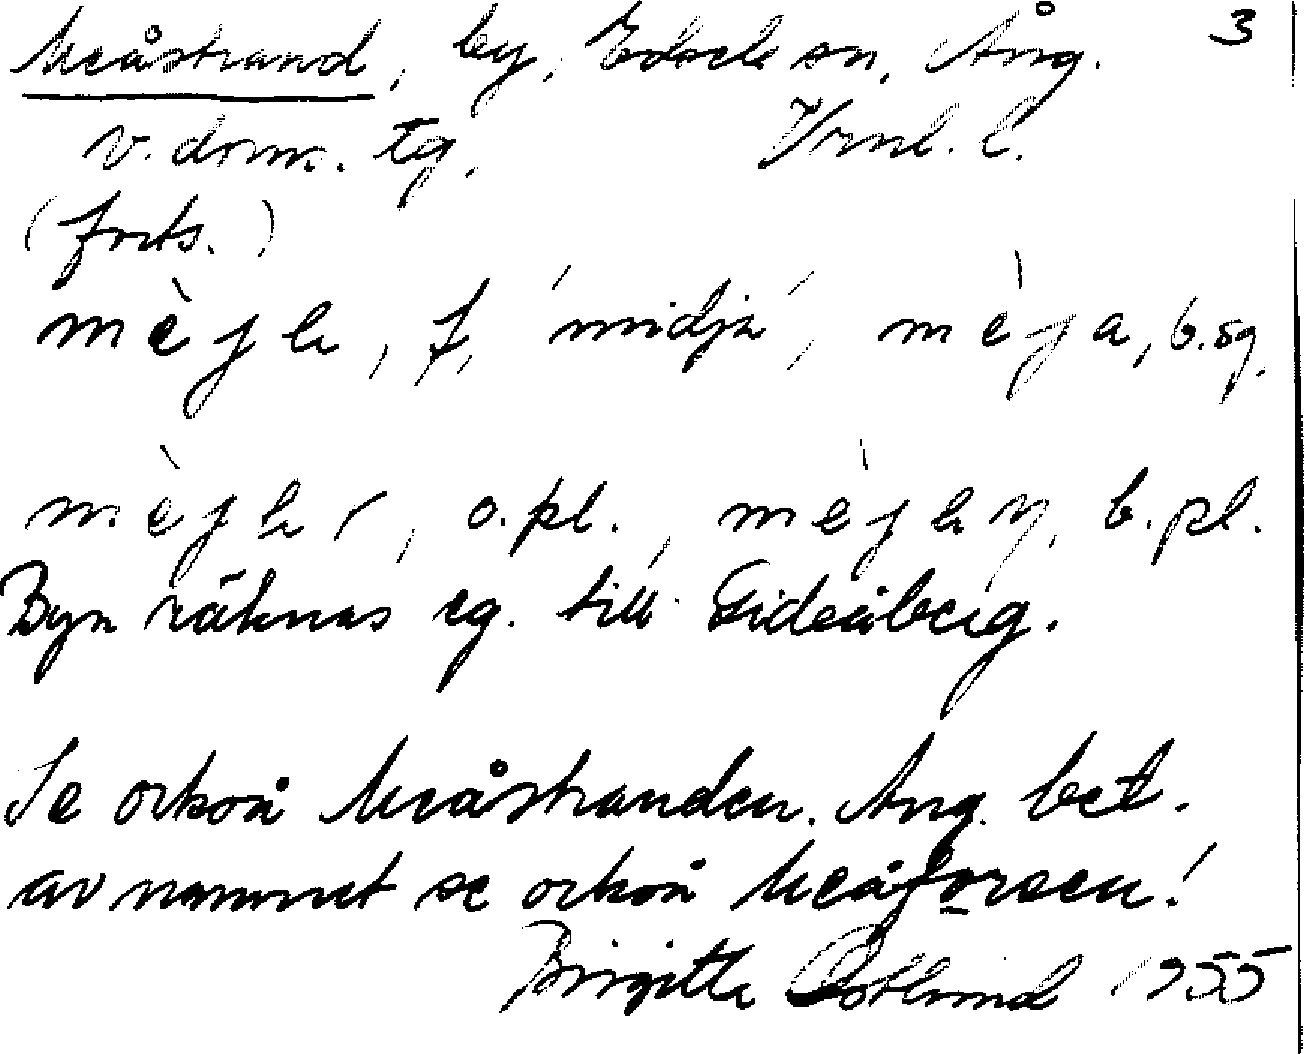 Meåstrand, by, Edsele sn, Ång. 3
v. dom. tg.
(forts.)
mèjh, f, 'midja', mèja, b.sg.
mèjhr, o.pl., mèjhṇ, b.pl.
Byn räknas eg. till Gideåberg.
Se också Meåstranden. Ang. bet.
av namnet se också Meåforsen!
Birgitta Östlund 1955